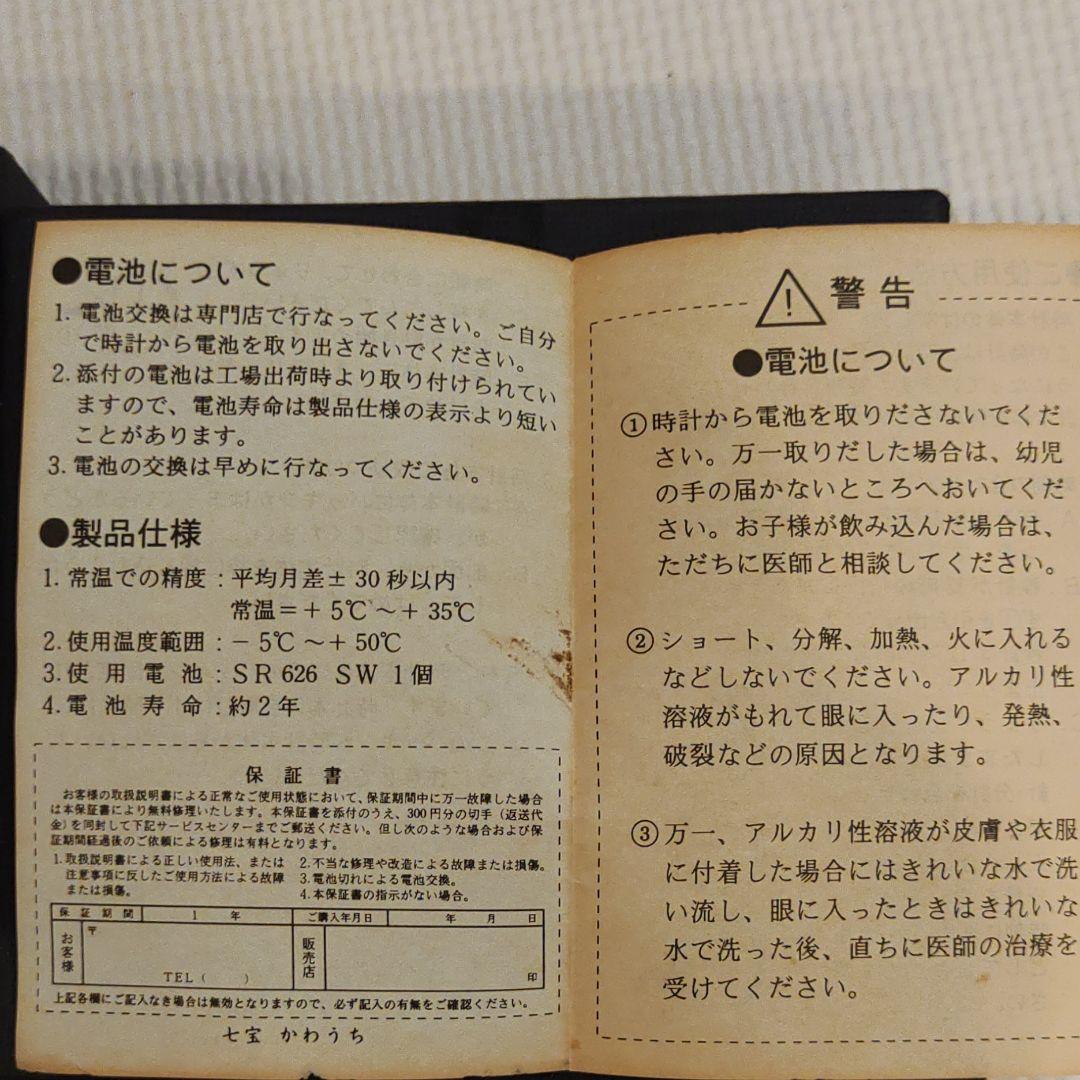 ●電池について
1. 電池交換は専門店で行なってください。ご自分
で時計から電池を取り出さないでください。
2. 添付の電池は工場出荷時より取り付けられてい
ますので、電池寿命は製品仕様の表示より短い
ことがあります。
3. 電池の交換は早めに行なってください。
●製品仕様
1. 常温での精度 : 平均月差± 30 秒以内
常温=+ 5℃ ~+ 35℃
2. 使用温度範囲 : − 5℃ ~+ 50℃
3. 使用電池 : SR 626 SW 1個
4. 電池寿命 : 約2年
保証書
お客様の取扱説明書による正常なご使用状態において、保証期間中に万一故障した場合
は本保証書により無料修理いたします。本保証書を添付のうえ、300円分の切手(返送代
金)を同封して下記サービスセンターまでご郵送ください。但し次のような場合および保
証期間経過後のご依頼による修理は有料となります。
1. 取扱説明書による正しい使用法、または
注意事項に反したご使用方法による故障
または損傷。
2. 不当な修理や改造による故障または損傷。
3. 電池切れによる電池交換。
4. 本保証書の指示がない場合。
保証期間 1年 ご購入年月日 年 月 日
お客様 〒 TEL( ) 販売店 印
上記各欄にご記入なき場合は無効となりますので、必ず記入の有無をご確認ください。
七宝 かわうち
警告
●電池について
①時計から電池を取りださないでくだ
さい。万一取りだした場合は、幼児
の手の届かないところへおいてくだ
さい。お子様が飲み込んだ場合は、
ただちに医師と相談してください。
②ショート、分解、加熱、火に入れる
などしないでください。アルカリ性
溶液がもれて眼に入ったり、発熱、
破裂などの原因となります。
③万一、アルカリ性溶液が皮膚や衣服
に付着した場合にはきれいな水で洗
い流し、眼に入ったときはきれいな
水で洗った後、直ちに医師の治療を
受けてください。